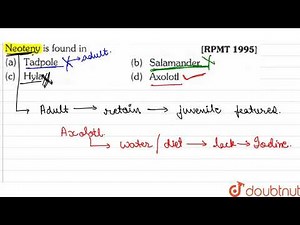 Neoteny is found in [RPMT 1995]
(a) Tadpole → adult.
(b) Salamander
(c) Hyla
(d) Axolotl
→ Adult → retains → juvenile features.
Axolotl
→ water / diet → lack → Iodine.
doubtnut